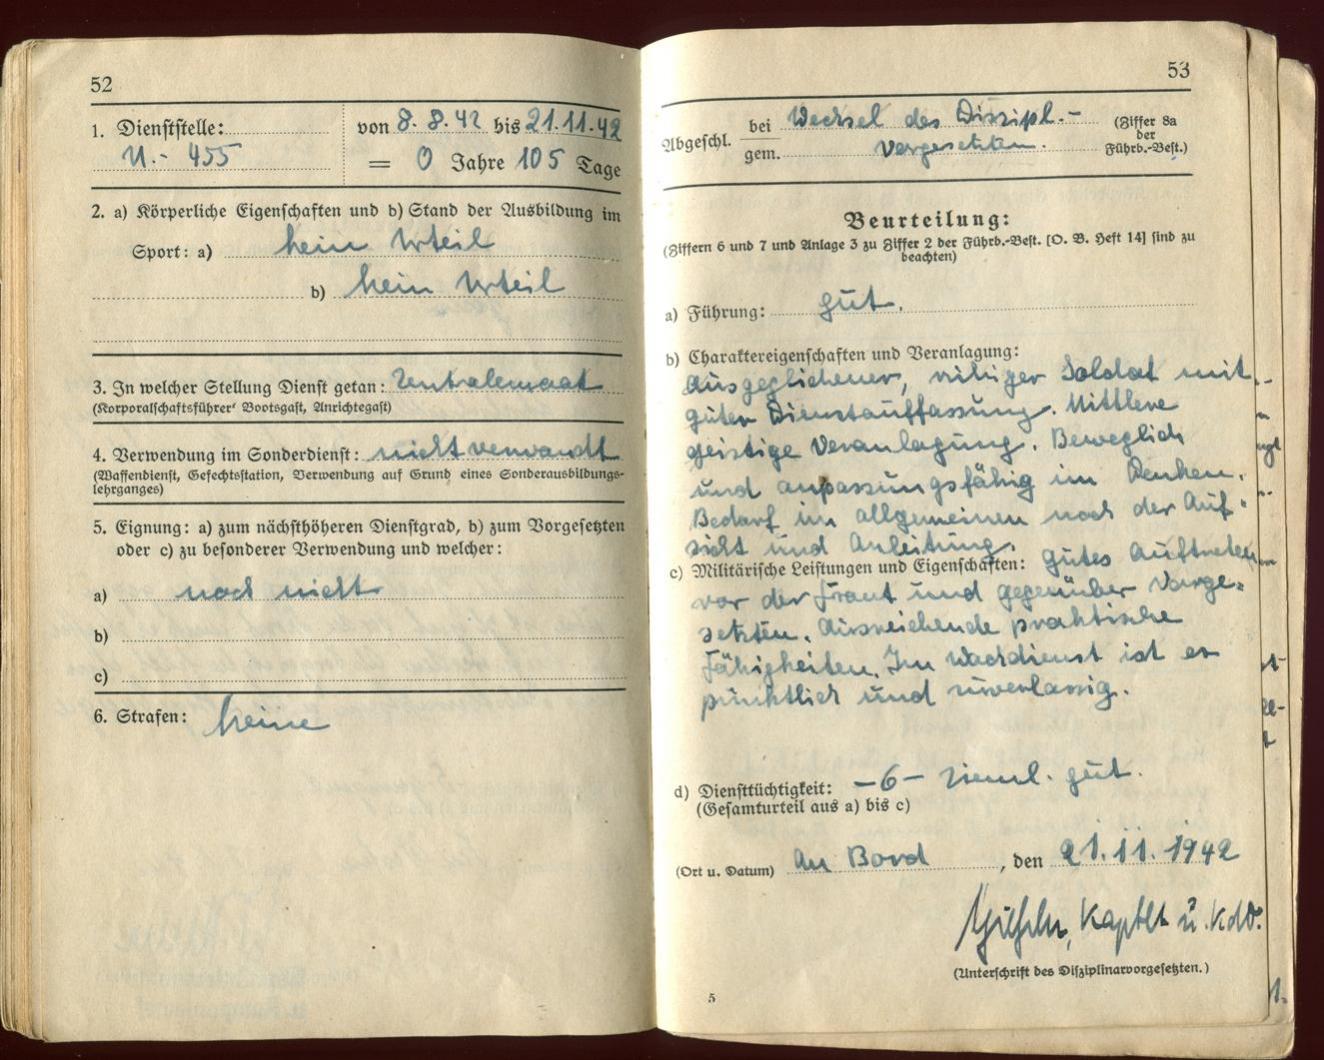 52
1. Dienststelle:
U.- 455
von 8.8.42 bis 21.11.42
= 0 Jahre 105 Tage
2. a) Körperliche Eigenschaften und b) Stand der Ausbildung im
Sport: a) kein Urteil
b) kein Urteil
3. In welcher Stellung Dienst getan: Zentralemaat
(Korporalschaftsführer' Bootsgast, Anrichtegast)
4. Verwendung im Sonderdienst: nicht verwandt
(Waffendienst, Gefechtsstation, Verwendung auf Grund eines Sonderausbildungs-
lehrganges)
5. Eignung: a) zum nächsthöheren Dienstgrad, b) zum Vorgesetzten
oder c) zu besonderer Verwendung und welcher:
a) noch nicht
b)
c)
6. Strafen: keine
53
Abgeschl. bei Wechsel des Diszipl.-
gem. Vorgesetzten.
(Ziffer 8a
der
Führb.-Best.)
Beurteilung:
(Ziffern 6 und 7 und Anlage 3 zu Ziffer 2 der Führb.-Best. [O. B. Heft 14] sind zu
beachten)
a) Führung: gut.
b) Charaktereigenschaften und Veranlagung:
Ausgeglichener, ruhiger Soldat mit
guter Dienstauffassung. Mittlere
geistige Veranlagung. Beweglich
und anpassungsfähig im Denken.
Bedarf im allgemeinen noch der Auf-
sicht und Anleitung.
c) Militärische Leistungen und Eigenschaften: Gutes Auftreten
vor der Front und gegenüber Vorge-
setzten. Ausreichende praktische
Fähigkeiten. Im Wachdienst ist er
pünktlich und zuverlässig.
d) Diensttüchtigkeit: -6- zieml. gut.
(Gesamturteil aus a) bis c)
(Ort u. Datum) An Bord, den 21.11.1942
Kaptlt u. Kdt.
(Unterschrift des Disziplinarvorgesetzten.)
5